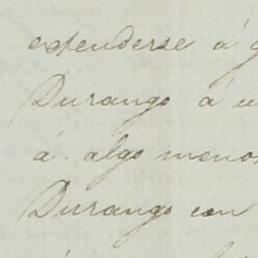 extenderse á
Durango á
á algo menos
Durango con